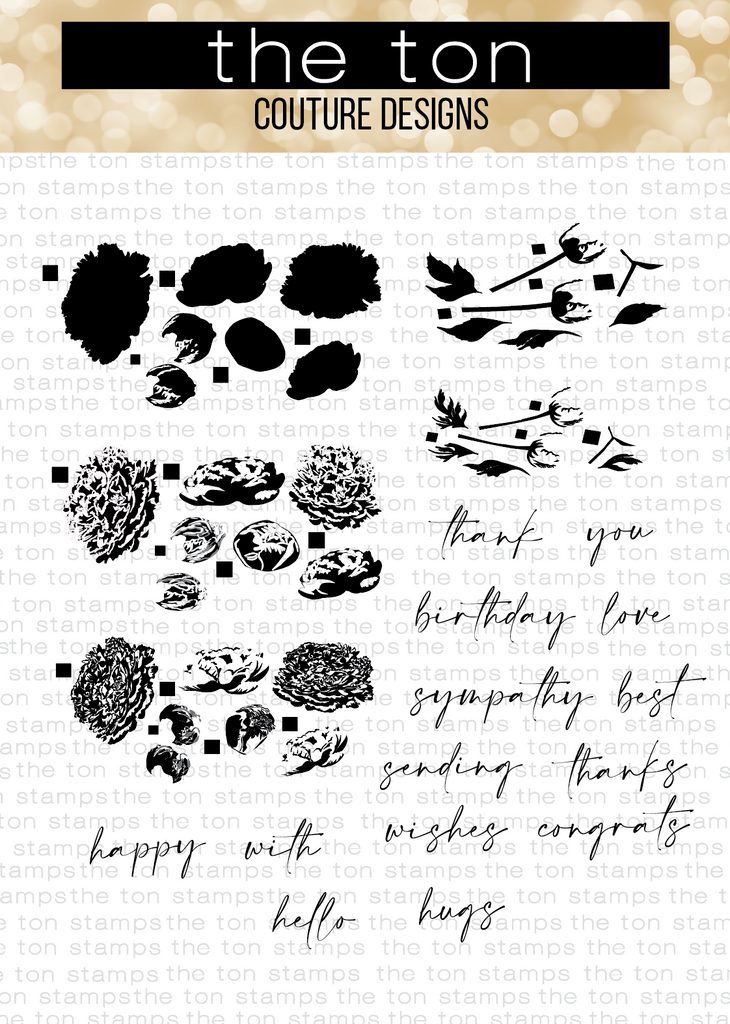 the ton
COUTURE DESIGNS
thank you
birthday love
sympathy best
sending thanks
wishes congrats
happy with
hello hugs